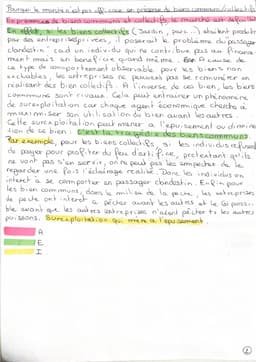 Pourquoi le marché n'est pas eff. en présence de biens communs/collectifs
En présence de biens communs et collectifs, le marché est défaillant
En effet, si les biens collectifs (Jardin, parc...) étaient produits
par des entreprises privées, il poserait le problème du passager
clandestin : càd un individu qui ne contribue pas au finance-
ment mais en bénéficie quand même. A cause de
ce type de comportement observable pour les biens non
excluables, les entreprises ne peuvent pas se rémunérer en
réalisant des biens collectifs. A l'inverse de ces bien, les biens
communs sont rivaux. Cela peut entrainer un phénomène
de surexploitation car chaque agent économique cherche à
maximiser son utilisation du bien avant les autres.
Cette surexploitation peut mener à l'épuisement ou diminu-
tion de ce bien : c'est la tragédie des biens communs.
Par exemple, pour les biens collectifs, si les individus refusent
de payer pour profiter du feu d'artifice, prétextant qu'ils
ne vont pas s'en servir, on ne peut pas les empêcher de le
regarder une fois l'éclairage réalisé. Donc les individus ont
intérêt à se comporter en passager clandestin. Enfin pour
les bien communs, dans le milieu de la pêche, les entreprises
de pêche ont intérêt à pêcher avant les autres et le + possi-
ble avant que les autres entreprises n'aient pêcher les autres
poissons. Surexploitation qui mène à l'épuisement.
A
E
I
2